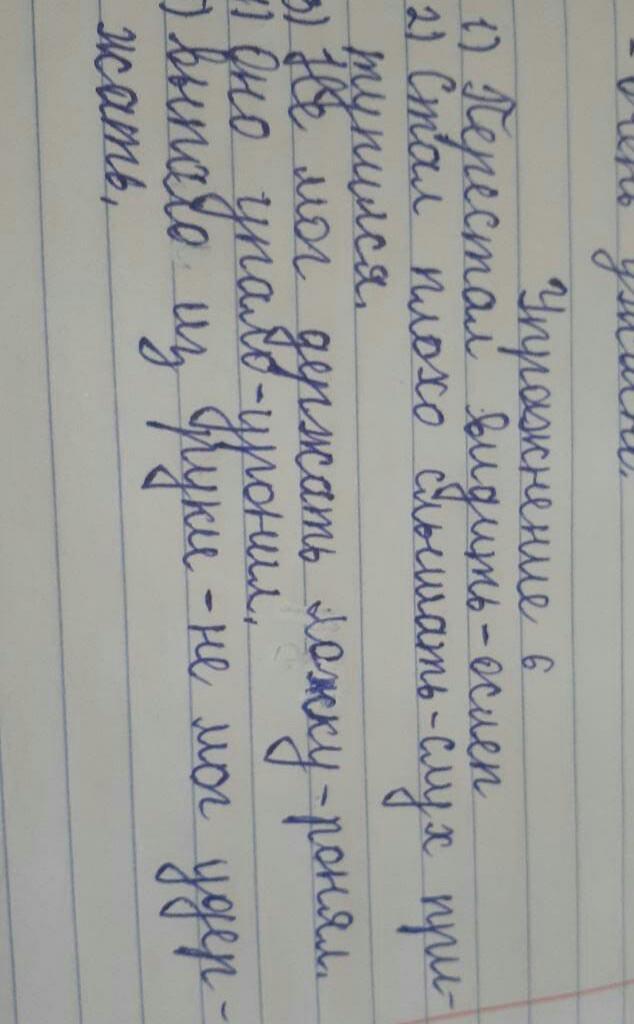 - очень
Упражнение 6
1) Перестал видить-ослеп
2) Стал плохо слышать-слух при-
тупился.
3) Не мог держать ложку-ронял.
4) Оно упало-уронил.
5) Выпало из руки-не мог удер-
жать.